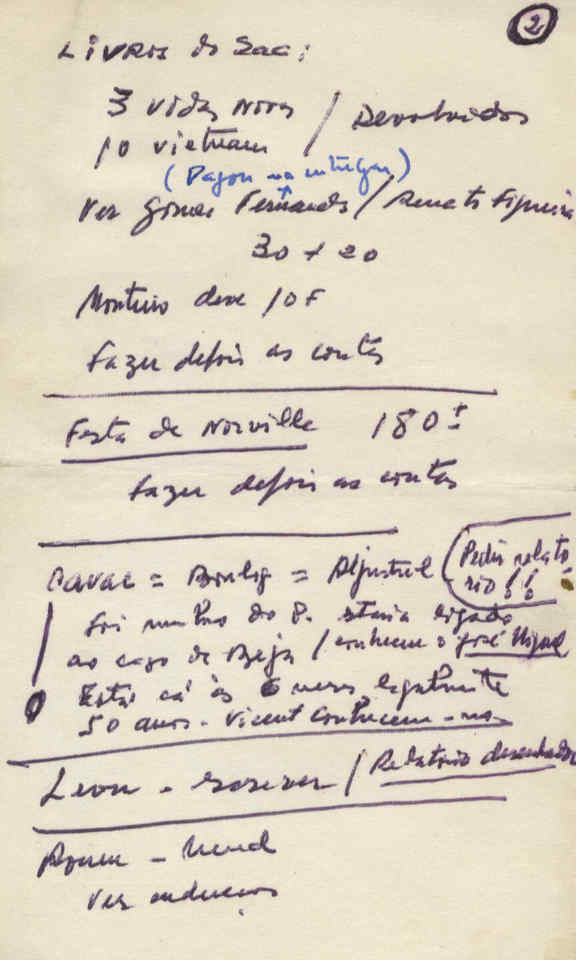 2
Livros do Sac:
3 vidas novas / Devolvidos
10 vietnam
(Pagou na entrega)
Ver Gomes Fernands / Renato Figueira
30 + 20
Monteiro deve 10 F
fazer depois as contas
Festa de Norville 180 ±
fazer depois as contas
= = Aljustrel (Pedir relató-
rio!!
foi membro do P. estaria ligado
ao caso de Beja / conhecem o José Miguel
Está cá às 6 meses legalmente
50 anos - Vicent conhecem-no
Leon - escrever / Relatório desenhador
-
Ver endereços